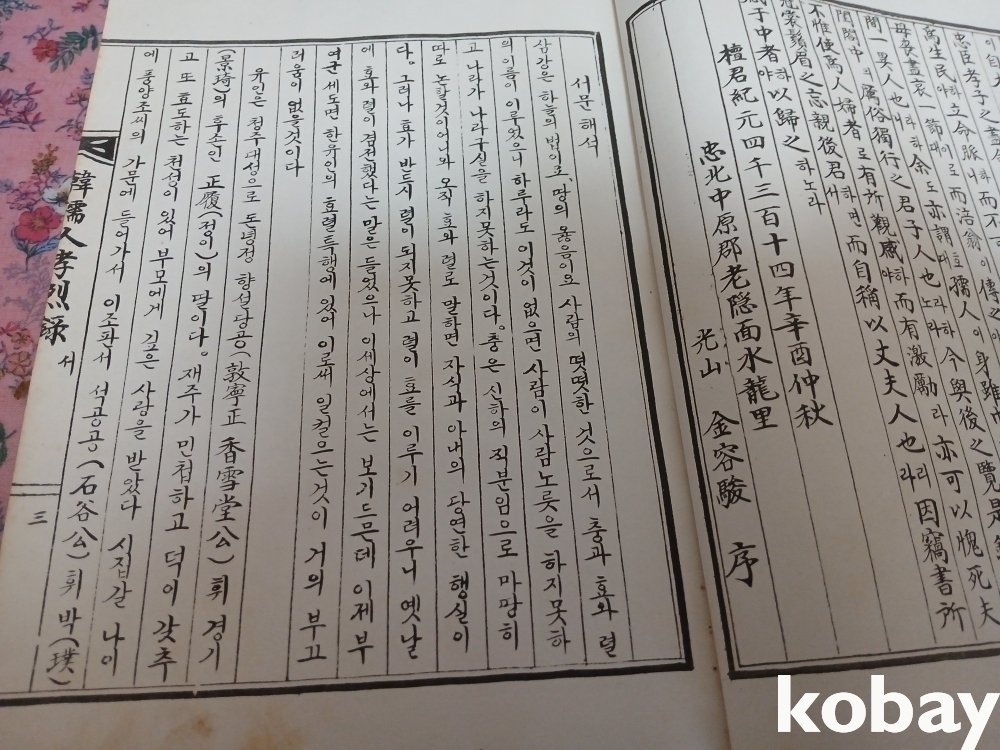 忠臣孝子
爲生民야하立命脈니하而不可
母喪盡哀一節이로而涪翁
間一男人也니라하余도亦謂대호孺人이身雖
閨閤中의厲俗獨行之君子人也노라하今與後之覽是
不惟使爲人婦者로有所觀感야하而有激勵라亦可以愧死夫
冠裳鬚眉之忘親後君서하면而自稱以丈夫人也라리因竊書所
感于中者야하以歸之하노라
檀君紀元四千三百十四年辛酉仲秋
忠北中原郡老隐面水龍里
光山 金容駿 序
서문해석
삼강은 하늘의 법이조, 땅의 옳음이요 사람의 떳떳한 것으로서 충과 효와 렬
의 이름이 이루었으니 하루라도 이것이 없으면 사람이 사람노릇을 하지못하
고 나라가 나라구실을 하지못하는것이다. 충은 신하의 직분임으로 마땅히
따로 논할것이어니와 오직 효와 렬로 말하면 자식과 아내의 당연한 행실이
다. 그러나 효가 반드시 렬이 되지못하고 렬이 효를 이루기 어려우니 옛날
에 효와 렬이 겸전했다는 말은 들었으나 이세상에서는 보기드믄데 이제 부
여군 세도면 한유인의 효렬특행에 있어 이로써 일컫으는것이 거의 부끄
러움이 없을것이다
유인은 청주대성으로 돈녕정 향설당공(敦寧正 香雪堂公) 휘 경기
(景琦)의 후손인 正履(정이)의 딸이다. 재주가 민첩하고 덕이 갖추
고 또 효도하는 천성이 있어 부모에게 깊은 사랑을 받았다 시집갈 나이
에 풍양조씨의 가문에 들어가서 이조판서 석곡공(石谷公) 휘 박(璞)
韓孺人孝烈录 서 三
kobay